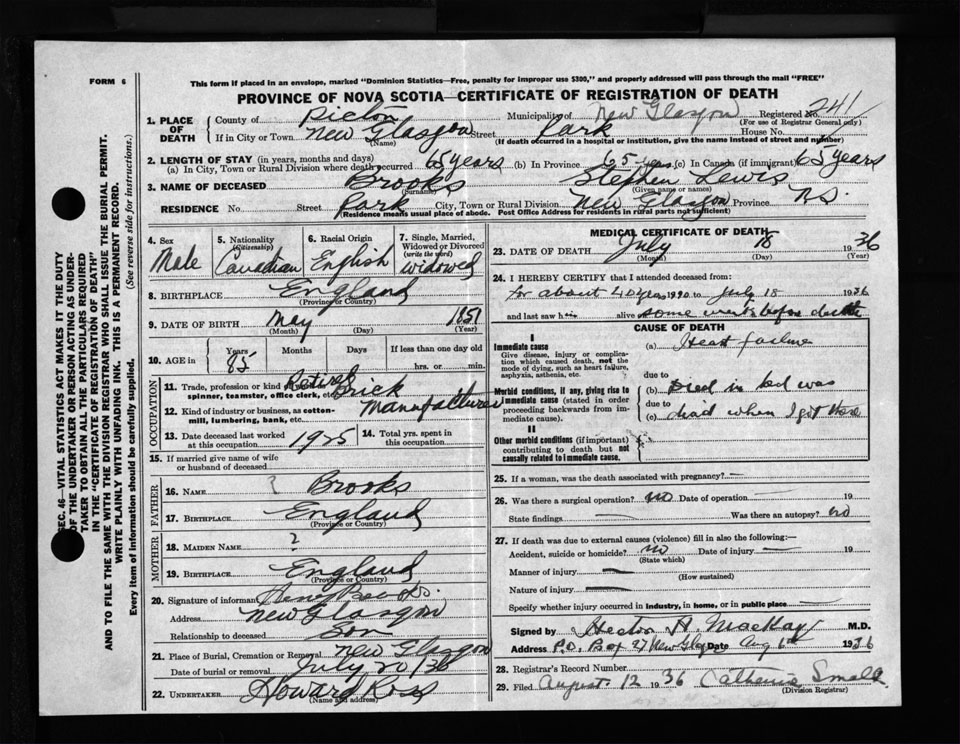 FORM 6
This form if placed in an envelope, marked "Dominion Statistics—Free, penalty for improper use $300," and properly addressed will pass through the mail "FREE"
PROVINCE OF NOVA SCOTIA—CERTIFICATE OF REGISTRATION OF DEATH
1. PLACE OF DEATH
County of Pictou Municipality of New Glasgow Registered No. 241
(For use of Registrar General only)
If in City or Town New Glasgow Street Park House No.
(Name) (If death occurred in a hospital or institution, give the name instead of street and number)
2. LENGTH OF STAY (in years, months and days)
(a) In City, Town or Rural Division where death occurred 65 years (b) In Province 65 years (c) In Canada (if immigrant) 65 years
3. NAME OF DECEASED Brooks Stephen Lewis
(Surname) (Given name or names)
RESIDENCE No. Street Park City, Town or Rural Division New Glasgow Province N.S.
(Residence means usual place of abode. Post Office Address for residents in rural parts not sufficient)
4. Sex Male
5. Nationality (Citizenship) Canadian
6. Racial Origin English
7. Single, Married, Widowed or Divorced (write the word) widowed
8. BIRTHPLACE England
(Province or Country)
9. DATE OF BIRTH May 1851
(Month) (Day) (Year)
10. AGE in Years 85 Months Days If less than one day old hrs. or min.
OCCUPATION
11. Trade, profession or kind of Retired Brick
spinner, teamster, office clerk, etc. Manufacturer
12. Kind of industry or business, as cotton-mill, lumbering, bank, etc.
13. Date deceased last worked at this occupation 1925
14. Total yrs. spent in this occupation
15. If married give name of wife or husband of deceased
FATHER
16. NAME ? Brooks
17. BIRTHPLACE England
(Province or Country)
MOTHER
18. MAIDEN NAME ?
19. BIRTHPLACE England
(Province or Country)
20. Signature of informant Brooks
Address New Glasgow
Relationship to deceased Son
21. Place of Burial, Cremation or Removal New Glasgow
Date of burial or removal July 20/36
22. UNDERTAKER Howard Ross
(Name and address)
MEDICAL CERTIFICATE OF DEATH
23. DATE OF DEATH July 18 1936
(Month) (Day) (Year)
24. I HEREBY CERTIFY that I attended deceased from:
for about 40 years to July 18 1936
and last saw h alive on some weeks before death
CAUSE OF DEATH
I
Immediate cause (a) Heart failure
Give disease, injury or complication which caused death, not the mode of dying, such as heart failure, asphyxia, asthenia, etc.
due to
Morbid conditions, if any, giving rise to immediate cause (stated in order proceeding backwards from immediate cause).
(b) Died in bed was
due to
(c) dead when I got there
II
Other morbid conditions (if important) contributing to death but not causally related to immediate cause.
25. If a woman, was the death associated with pregnancy? —
26. Was there a surgical operation? no Date of operation — 19
State findings — Was there an autopsy? no
27. If death was due to external causes (violence) fill in also the following:—
Accident, suicide or homicide? no Date of injury — 19
(State which)
Manner of injury —
(How sustained)
Nature of injury —
Specify whether injury occurred in industry, in home, or in public place —
Signed by Hector H. MacKay M.D.
Address P.O. Box 27 New Glasgow Date Aug 6th 1936
28. Registrar's Record Number
29. Filed August 12 1936 Catherine Small
(Division Registrar)
SEC. 46—VITAL STATISTICS ACT MAKES IT THE DUTY
OF THE UNDERTAKER OR PERSON ACTING AS UNDER-
TAKER TO OBTAIN ALL THE PARTICULARS REQUIRED
IN THE "CERTIFICATE OF REGISTRATION OF DEATH"
AND TO FILE THE SAME WITH THE DIVISION REGISTRAR WHO SHALL ISSUE THE BURIAL PERMIT.
WRITE PLAINLY WITH UNFADING INK. THIS IS A PERMANENT RECORD.
Every item of information should be carefully supplied. (See reverse side for instructions.)